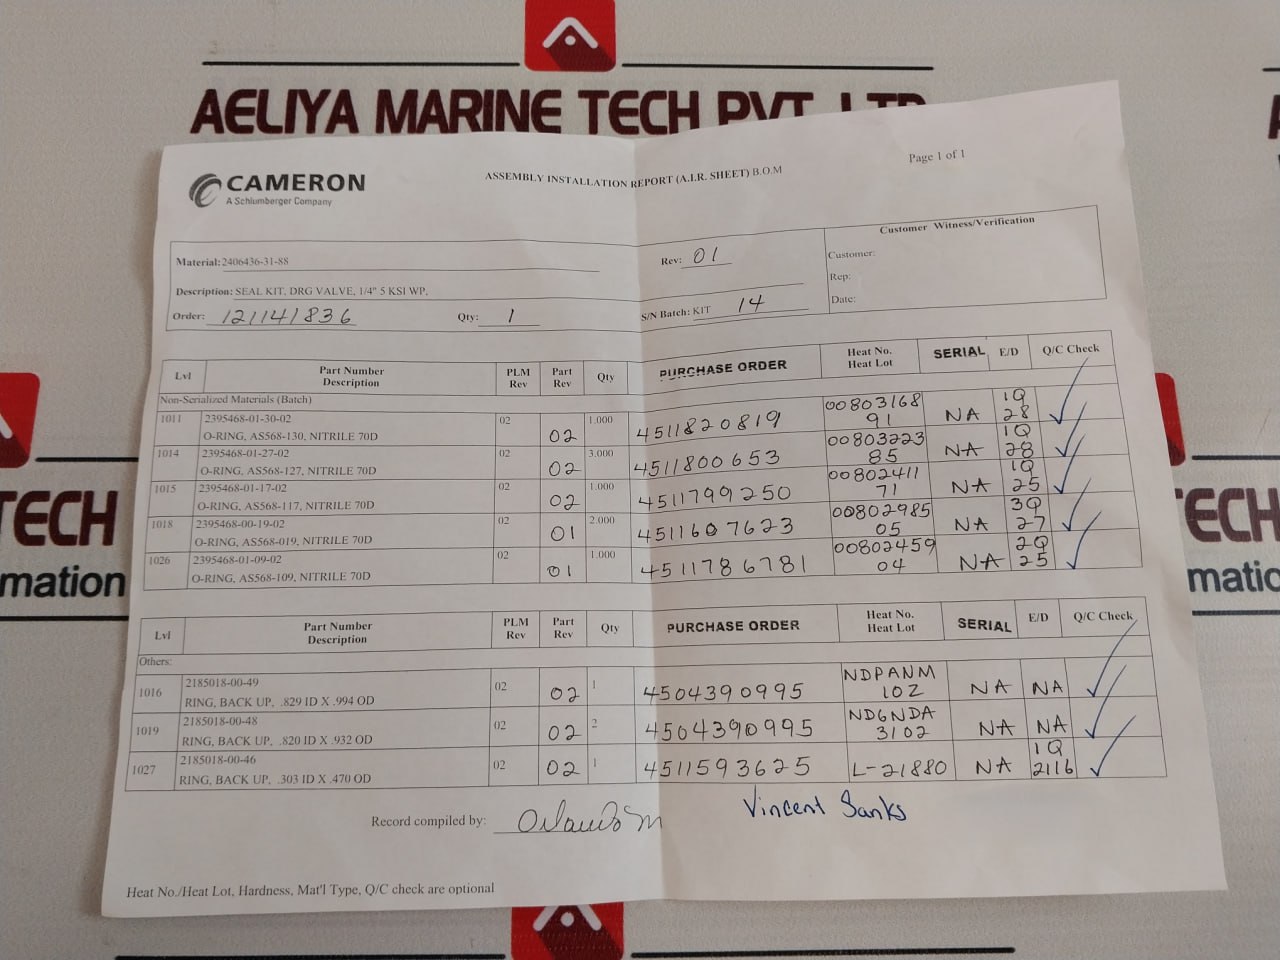 AELIYA MARINE TECH PVT. LTD
CAMERON
A Schlumberger Company
ASSEMBLY INSTALLATION REPORT (A.I.R. SHEET) B.O.M
Page 1 of 1
Material: 2406436-31-88
Rev: 01
Customer Witness/Verification
Customer:
Rep:
Date:
Description: SEAL KIT, DRG VALVE, 1/4" 5 KSI WP,
Order: 121141836 Qty: 1 S/N Batch: KIT 14
Lvl Part Number Description PLM Rev Part Rev Qty PURCHASE ORDER Heat No. Heat Lot SERIAL E/D Q/C Check
Non-Serialized Materials (Batch)
1011 2395468-01-30-02 02 1.000 4511820819 0080316891 NA 1Q 28
O-RING, AS568-130, NITRILE 70D 02
1014 2395468-01-27-02 02 3.000 4511800653 0080322385 NA 1Q 28
O-RING, AS568-127, NITRILE 70D 02
1015 2395468-01-17-02 02 1.000 4511799250 0080241171 NA 1Q 25
O-RING, AS568-117, NITRILE 70D 02
1018 2395468-00-19-02 02 2.000 4511607623 0080298505 NA 3Q 27
O-RING, AS568-019, NITRILE 70D 01
1026 2395468-01-09-02 02 1.000 4511786781 0080245904 NA 2Q 25
O-RING, AS568-109, NITRILE 70D 01
Lvl Part Number Description PLM Rev Part Rev Qty PURCHASE ORDER Heat No. Heat Lot SERIAL E/D Q/C Check
Others:
1016 2185018-00-49 02 02 1 4504390995 NDPANM 102 NA NA
RING, BACK UP, .829 ID X .994 OD
1019 2185018-00-48 02 02 2 4504390995 ND6NDA 3102 NA NA
RING, BACK UP, .820 ID X .932 OD
1027 2185018-00-46 02 02 1 4511593625 L-21880 NA 1Q 2116
RING, BACK UP, .303 ID X .470 OD
Record compiled by:
Vincent Banks
Heat No./Heat Lot, Hardness, Mat'l Type, Q/C check are optional
TECH
mation
ECH
matic